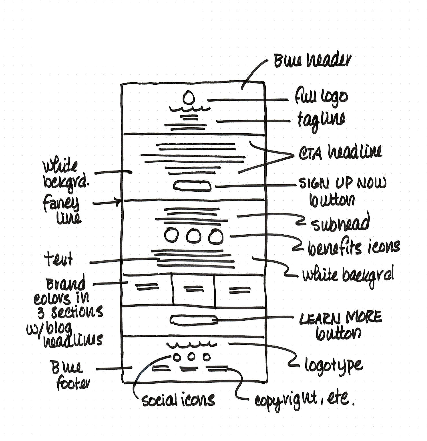 Blue header
full logo
tagline
CTA headline
white
bckgrd.
SIGN UP NOW
button
fancy
line
subhead
benefits icons
text
white backgrd
Brand
colors in
3 sections
w/blog
headlines
LEARN MORE
button
logotype
Blue
footer
social icons
copyright, etc.